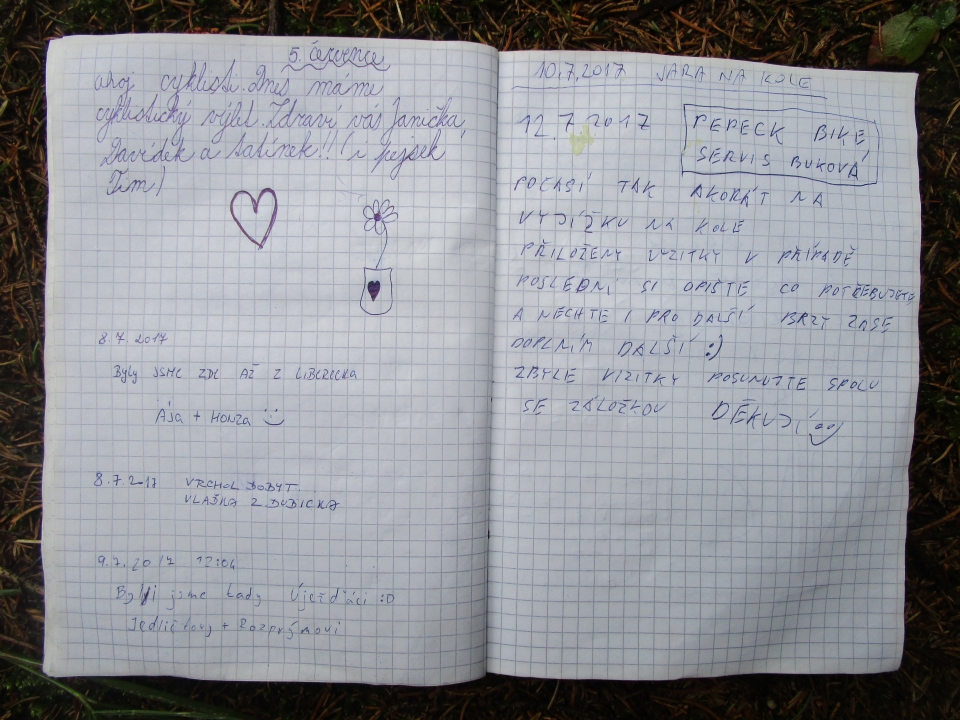 5. července
ahoj cyklisti. Dnes máme
cyklistický výlet. Zdraví vás Janička,
Davídek a tatínek!! (i pejsek
Tim)
8.7. 2017
Byly JSME ZDE AŽ Z LIBERECKA
Ája + HONZA
8.7.2017 VRCHOL DOBYT.
VLAĎKA Z
9.7.2017 12:04
Byli jsme tady Újezďáci :D
+
10.7.2017 JARA NA KOLE
12.7.2017
PEPECK BIKE
SERVIS BUKOVÁ
POČASÍ TAK AKORÁT NA
VYJÍŽĎKU NA KOLE
PŘILOŽENY VIZITKY V PŘÍPADĚ
POSLEDNÍ SI OPIŠTE CO POTŘEBUJETE
A NECHTE I PRO DALŠÍ BRZY ZASE
DOPLNÍM DALŠÍ :)
ZBYLE VIZITKY POSUNUJTE SPOLU
SE ZÁLOŽKOU DĚKUJI